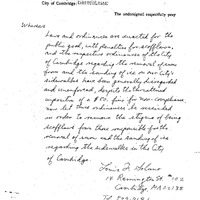 City of Cambridge,
The undersigned respectfully pray
Whereas
Laws and ordinances are enacted for the
public good, with penalties for scofflaws,
and the respective ordinances of the City
of Cambridge regarding the removal of snow
from and the sanding of ice on our City's
sidewalks have been generally disregarded
and unenforced, despite the threatened
imposition of a fine for non-compliance,
now let those ordinances be amended
in order to remove the stigma of being
scofflaws from those responsible for the
removal of snow and the sanding of ice
regarding the sidewalks in the City
of Cambridge.
Louis F. Solano
14 Remington St. #102
Cambridge MA 02138